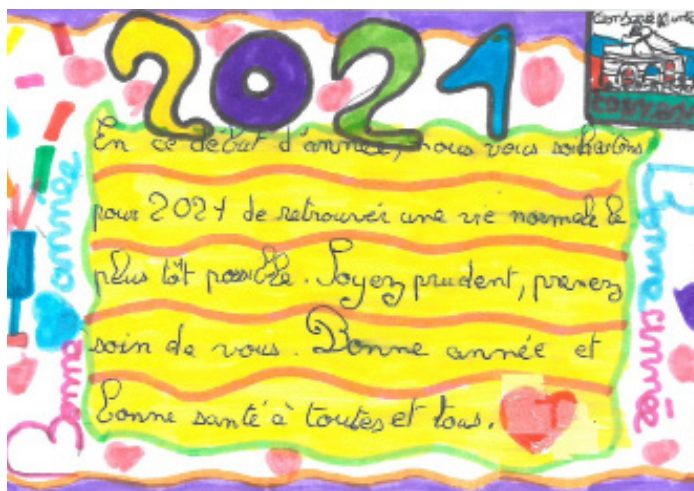 2021
En ce début d'année, nous vous souhaitons
pour 2021 de retrouver une vie normale le
plus tôt possible. Soyez prudent, prenez
soin de vous. Bonne année et
bonne santé à toutes et tous.
Bonne année
Bonne année